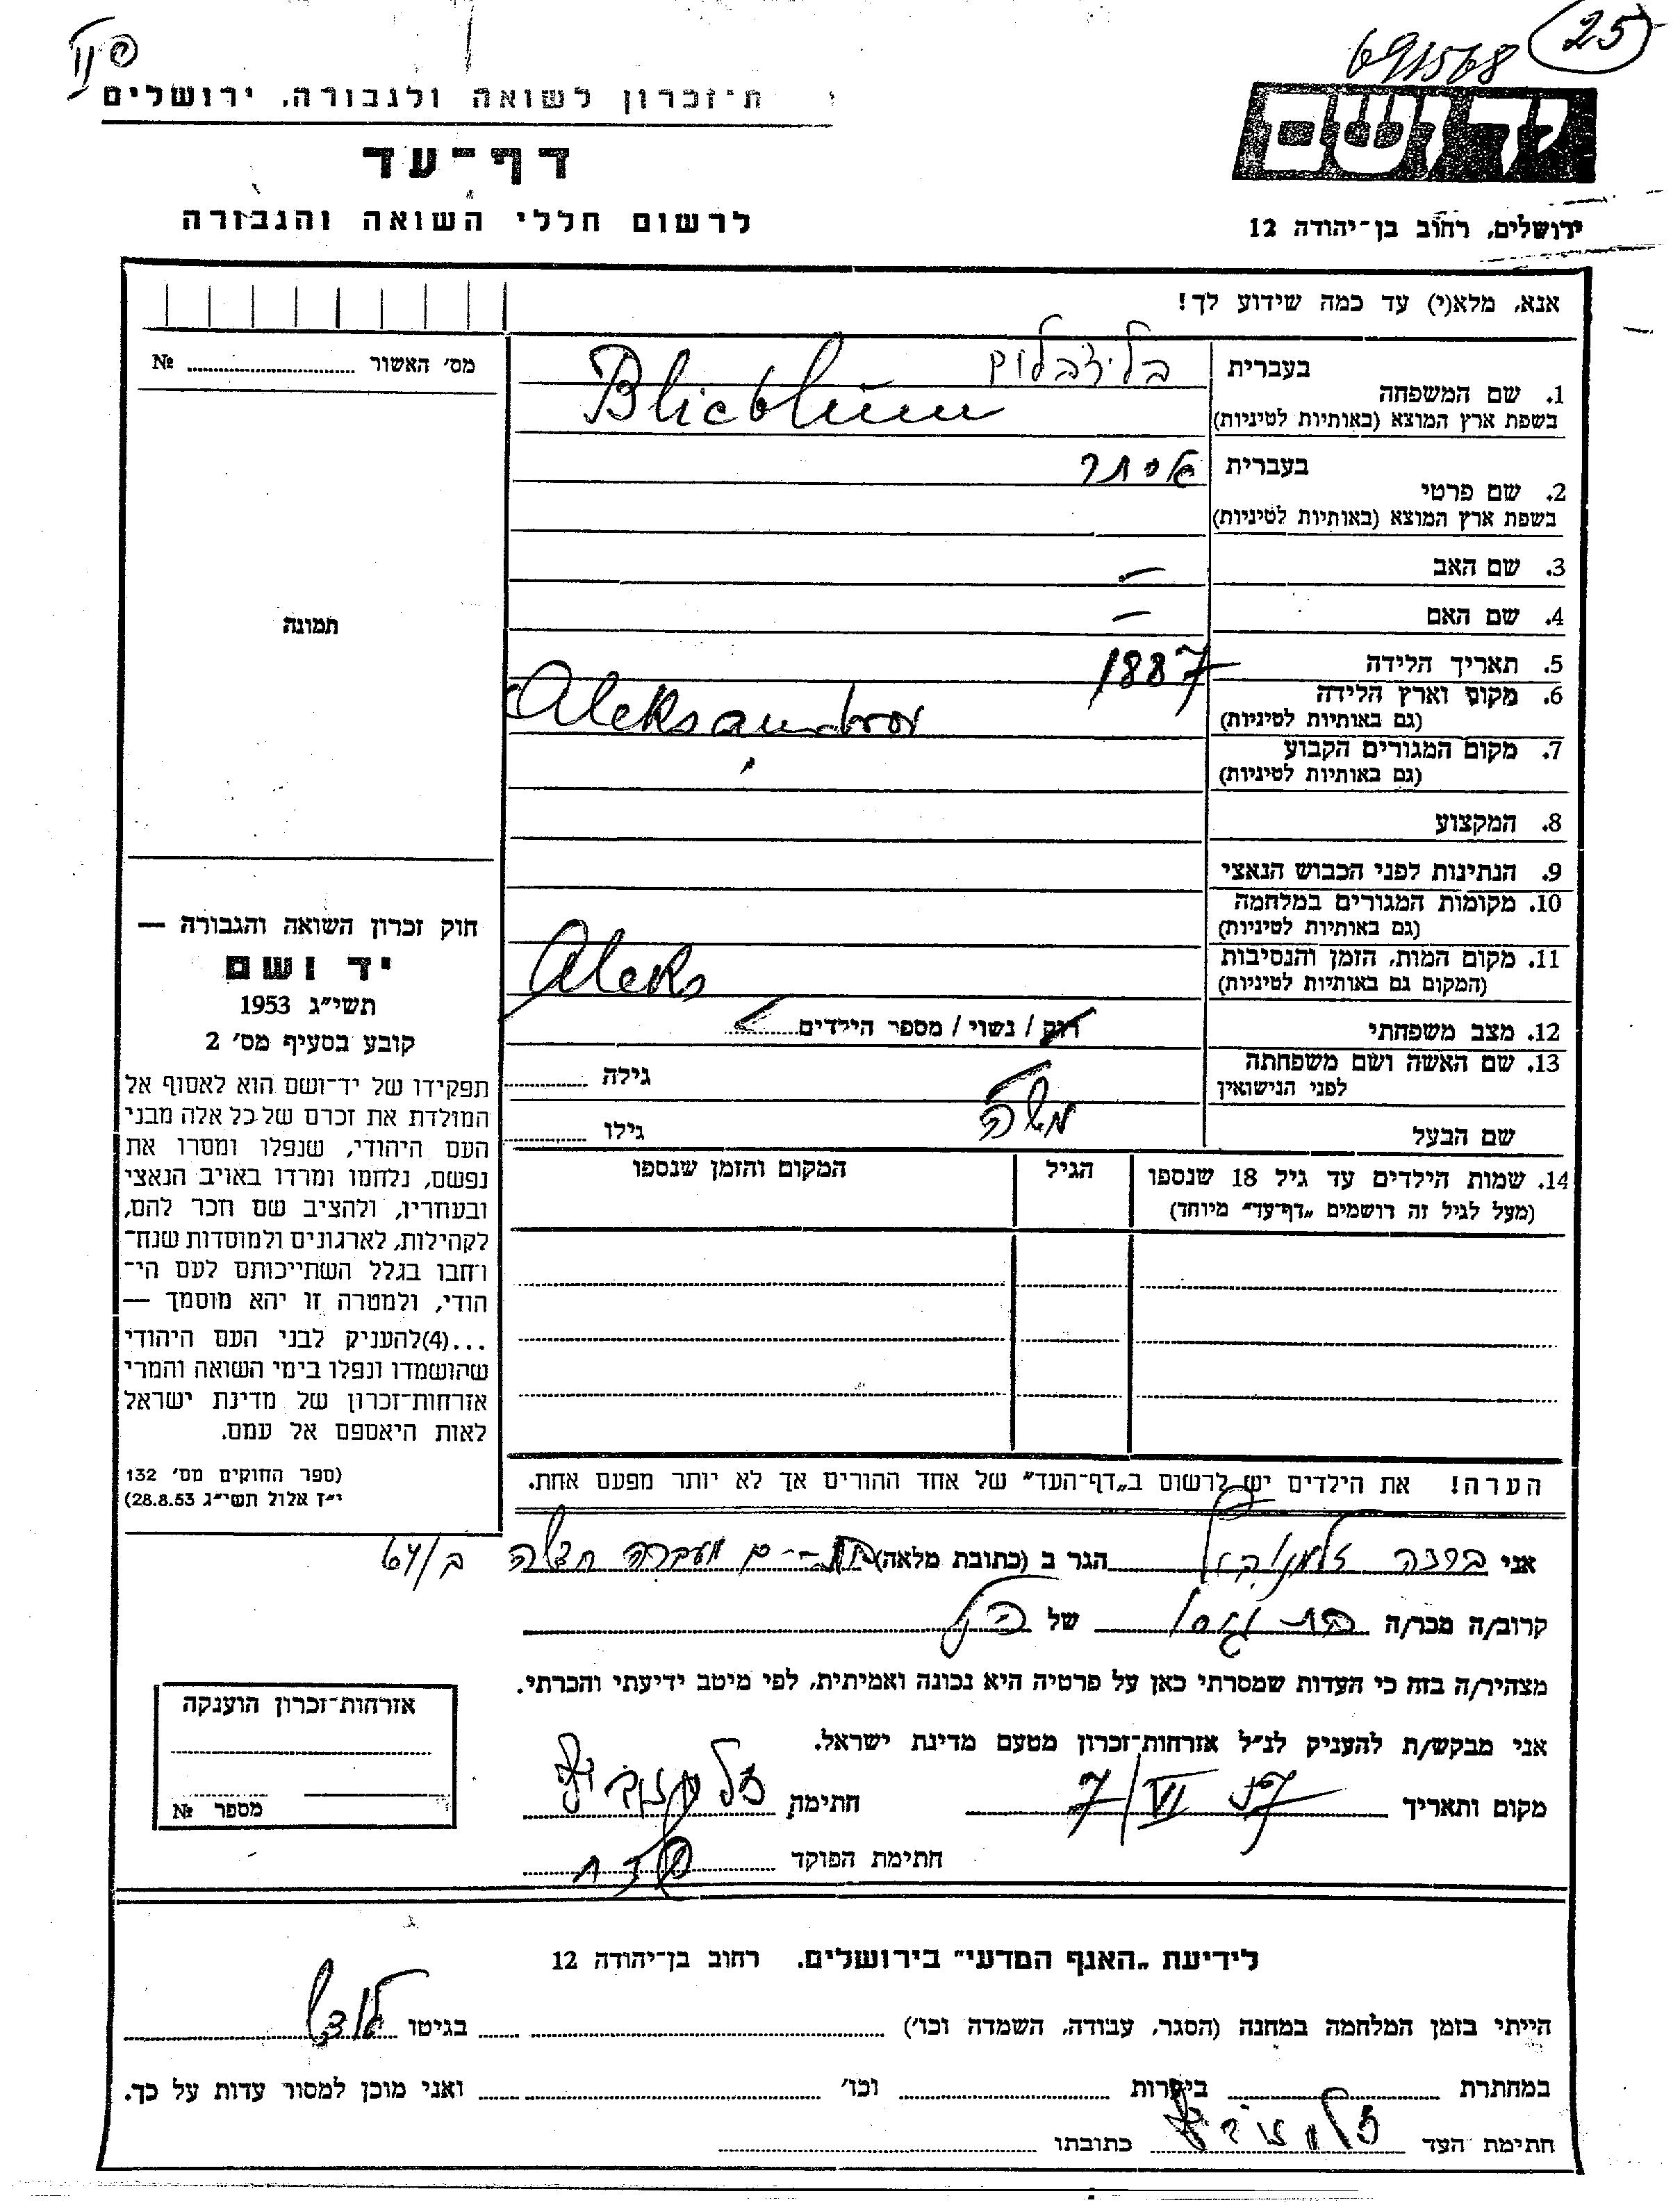 25
691568
ת־זכרון לשואה ולגבורה, ירושלים
יד ושם
דף־עד
לרשום חללי השואה והגבורה
ירושלים, רחוב בן־יהודה 12
אנא, מלא(י) עד כמה שידוע לך!
מס׳ האשור № 
1. שם המשפחה בעברית בליצבלום
בשפת ארץ המוצא (באותיות לטיניות) Blicblum
2. שם פרטי בעברית אסתר
בשפת ארץ המוצא (באותיות לטיניות)
3. שם האב —
4. שם האם —
5. תאריך הלידה 1887
6. מקום וארץ הלידה
(גם באותיות לטיניות) Aleksandrov
7. מקום המגורים הקבוע
(גם באותיות לטיניות)
8. המקצוע
9. הנתינות לפני הכבוש הנאצי
10. מקומות המגורים במלחמה
(גם באותיות לטיניות)
11. מקום המות, הזמן והנסיבות
(המקום גם באותיות לטיניות) Aleks
12. מצב משפחתי רוק / נשוי / מספר הילדים
13. שם האשה ושם משפחתה
לפני הנישואין גילה
שם הבעל משה גילו
14. שמות הילדים עד גיל 18 שנספו הגיל המקום והזמן שנספו
(מעל לגיל זה רושמים „דף־עד״ מיוחד)
הערה! את הילדים יש לרשום ב„דף־העד״ של אחד ההורים אך לא יותר מפעם אחת.
תמונה
חוק זכרון השואה והגבורה —
יד ושם
תשי״ג 1953
קובע בסעיף מס׳ 2
תפקידו של יד־ושם הוא לאסוף אל
המולדת את זכרם של כל אלה מבני
העם היהודי, שנפלו ומסרו את
נפשם, נלחמו ומרדו באויב הנאצי
ובעוזריו, ולהציב שם וזכר להם,
לקהילות, לארגונים ולמוסדות שנח־
רבו בגלל השתייכותם לעם הי־
הודי, ולמטרה זו יהא מוסמך —
...(4) להעניק לבני העם היהודי
שהושמדו ונפלו בימי השואה והמרי
אזרחות־זכרון של מדינת ישראל
לאות היאספם אל עמם.
(ספר החוקים מס׳ 132
י״ז אלול תשי״ג 28.8.53)
אני הגר ב (כתובת מלאה) מעברה ב/64
קרוב/ה מכר/ה של
מצהיר/ה בזה כי העדות שמסרתי כאן על פרטיה היא נכונה ואמיתית, לפי מיטב ידיעתי והכרתי.
אני מבקש/ת להעניק לנ״ל אזרחות־זכרון מטעם מדינת ישראל.
מקום ותאריך 7/VI 57 חתימה
חתימת הפוקד
אזרחות־זכרון הוענקה
מספר №
לידיעת „האגף המדעי״ בירושלים. רחוב בן־יהודה 12
הייתי בזמן המלחמה במחנה (הסגר, עבודה, השמדה וכו׳) בגיטו לודש
במחתרת ביערות וכו׳ ואני מוכן למסור עדות על כך.
חתימת העד כתובתו